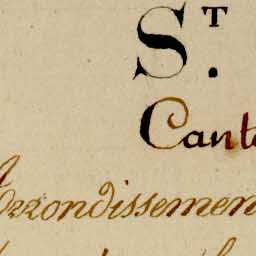 S.T
Cant
Arrondissemen